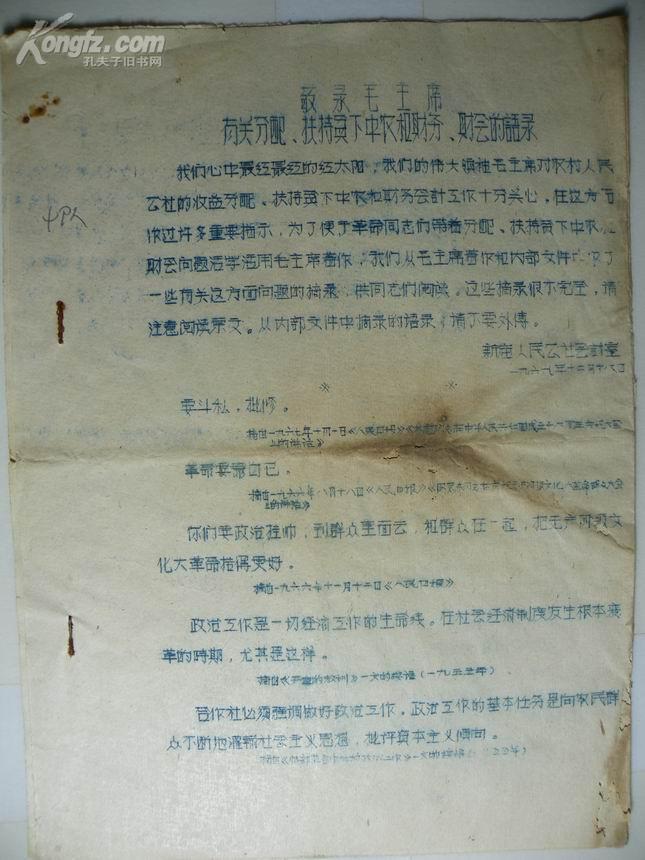 Kongfz.com
孔夫子旧书网
敬录毛主席
有关分配、扶持贫下中农和财务、财会的语录
我们心中最红最红的红太阳，我们的伟大领袖毛主席对农村人民
公社的收益分配、扶持贫下中农和财务会计工作十分关心，在这方面
作过许多重要指示，为了便于革命同志们带着分配、扶持贫下中农、
财会问题活学活用毛主席著作，我们从毛主席著作和内部文件中
一些有关这方面问题的摘录，供同志们阅读。这些摘录很不完全，请
注意阅读原文。从内部文件中摘录的语录，请不要外传。
人民公社会计室
一九六八年十二月十八日
※ ※
要斗私，批修。
摘自一九六七年十月《人民日报》
革命要靠自己。
摘自一九六六年八月十八日《人民日报》
的讲话》
你们要政治挂帅，到群众里面去，和群众在一起，把无产阶级文
化大革命搞得更好。
摘自一九六六年十一月十二日《人民日报》
政治工作是一切经济工作的生命线。在社会经济制度发生根本变
革的时期，尤其是这样。
摘自《严重的教训》一文的按语（一九五五年）
合作社必须强调做好政治工作，政治工作的基本任务是向农民群
众不断地灌输社会主义思想，批评资本主义倾向。